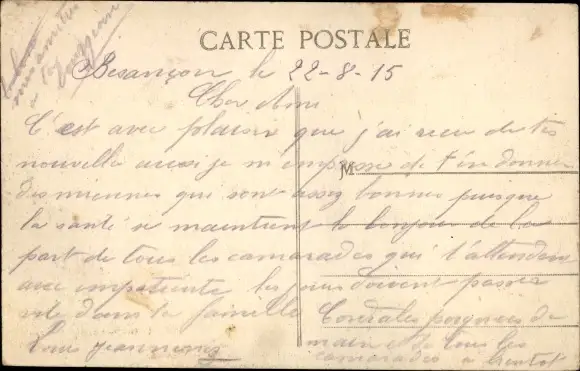 CARTE POSTALE
Besançon le 22-8-15
Cher Ami
C'est avec plaisir que j'ai recu de tes
nouvelle aussi je m'empresse de t'en donner
M
des miennes qui sont assez bonnes puisque
la santé se maintient le bonjour de la
part de tous les camarades qui t'attendent
avec impatiente les jours doivent passer
vite dans la famille
Louis
Cordiales poignees de
main et de tous les
camarades a bientot